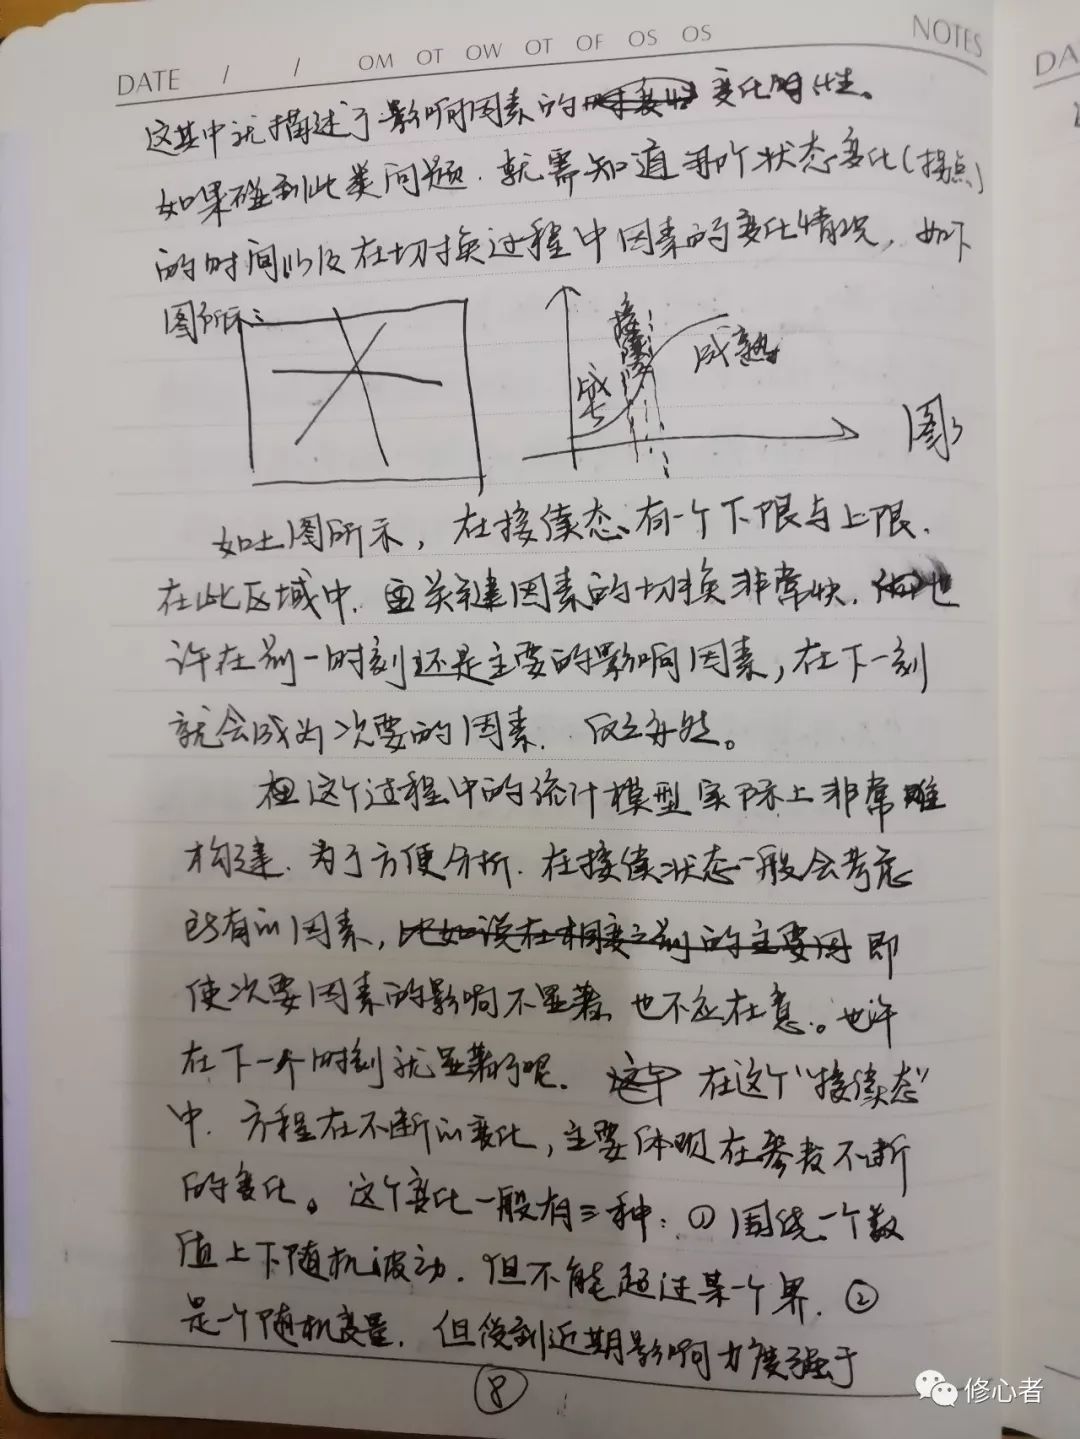 DATE / / OM OT OW OT OF OS OS NOTES
这其中就描述了影响因素的变化特性。
如果碰到此类问题.就需知道两个状态变化(拐点)
的时间以及在切换过程中因素的变化情况,如下
图所示:
接续
成长
成熟
图3
如上图所示,在接续态、有一个下限与上限.
在此区域中.关键因素的切换非常快.也
许在前一时刻还是主要的影响因素,在下一刻
就会成为次要的因素.反之亦然。
在这个过程中的统计模型实际上非常难
构建.为了方便分析.在接续状态一般会考虑
所有的因素,比如说在相变之前的主要因即
使次要因素的影响不显著,也不应在意。也许
在下一个时刻就显著了呢.在这个"接续态"
中.方程在不断的变化,主要体现在参数不断
的变化。这个变化一般有三种:①围绕一个数
值上下随机波动.但不能超过某一个界.②
是一个随机变量.但受到近期影响力度强于
8
修心者